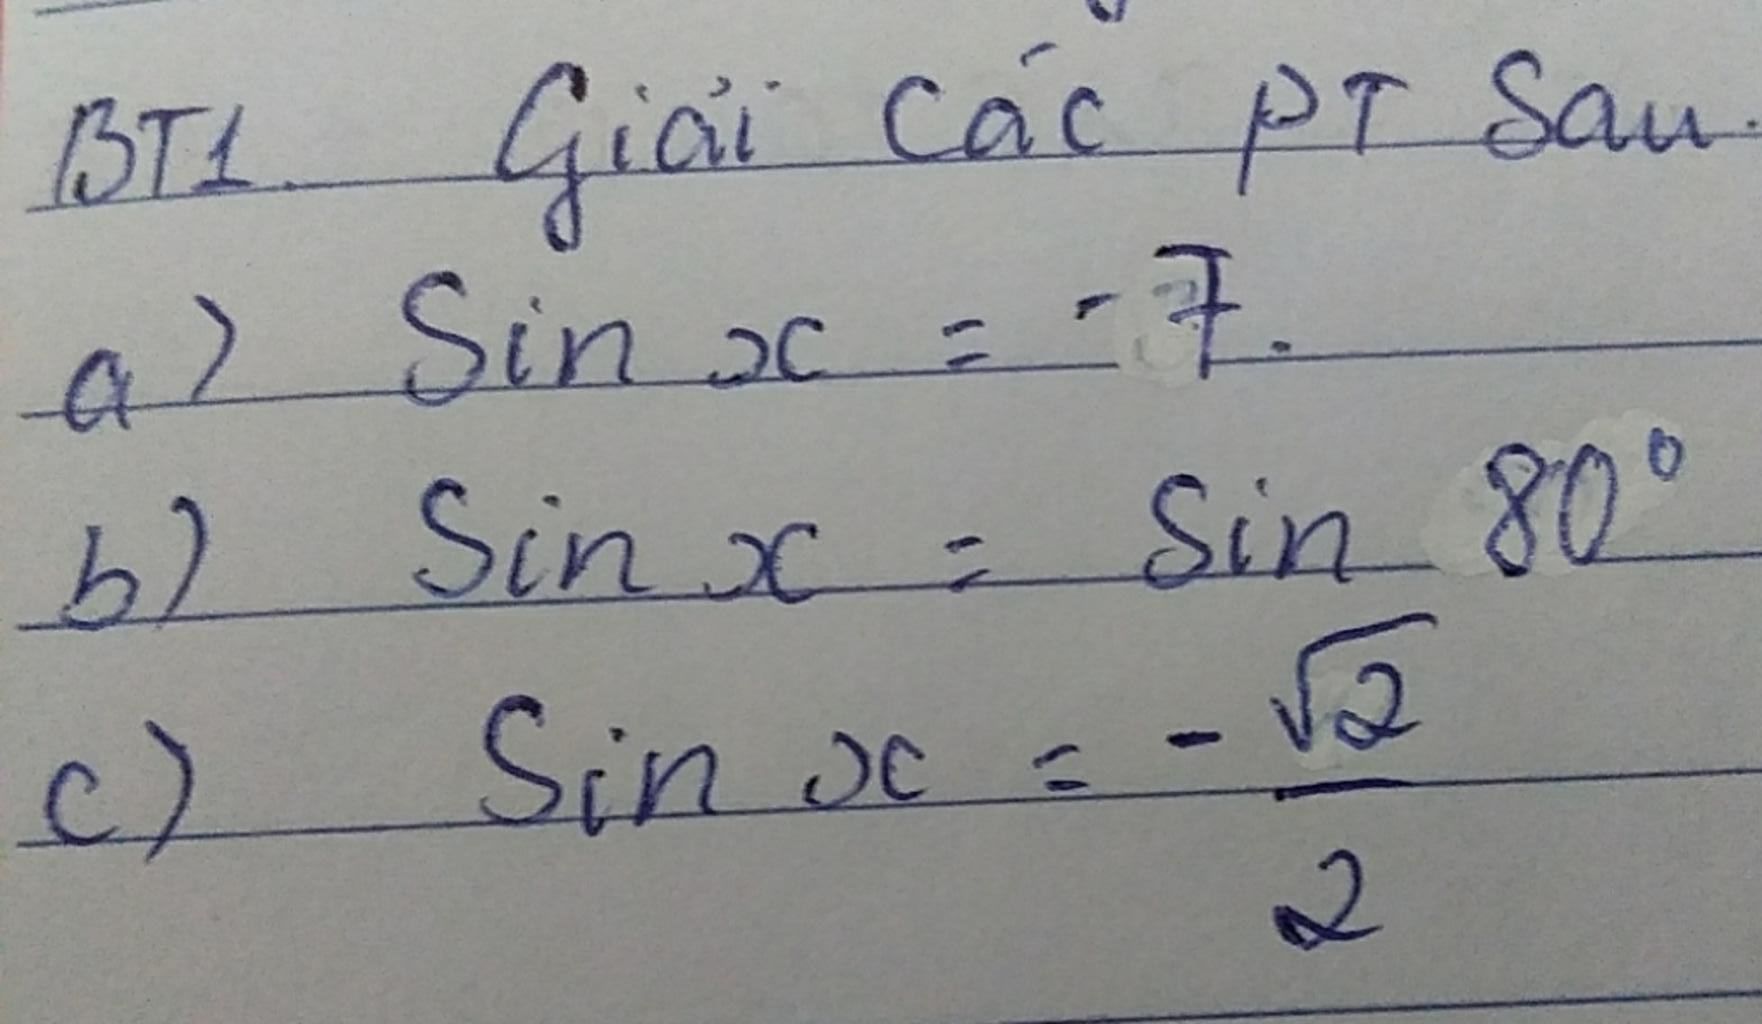 BT1. Giải các PT Sau.
a) Sin x = -7.
b) Sin x = Sin 80°
c) Sin x = -√2/2